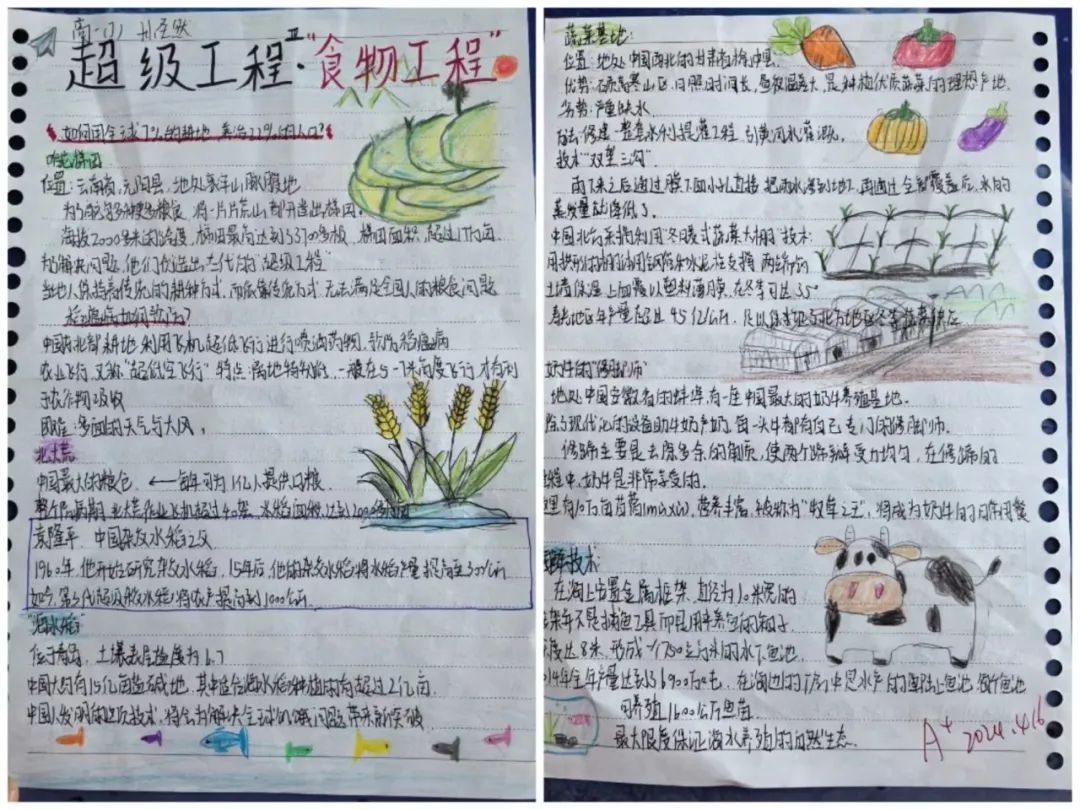 超级工程Ⅱ·"食物工程"
如何用全球7%的耕地,养活22%的人口?
哈尼梯田
位置:云南省,元阳县,地处哀牢山脉腹地
将一片片荒山都开造出梯田。
海拔2000多米的 梯田最高达到3700多级,梯田面积,超过17万亩。
为解决问题,他们创造出古代的"超级工程"
当地人保持着传统的耕种方式,而依靠传统方式,无法满足全国人的粮食问题
中国东北部耕地利用飞机超低飞行进行喷洒药物,
农业飞行,又称"超低空飞行" 特性:离地特别低,一般在5-7米高度飞行才有利
于农作物吸收
困难:多面的天气与大风。
北大荒
中国最大的粮仓。 ← 每年可为1亿人提供口粮。
北大荒作业飞机超过40架,水稻面积达到2000多万亩
袁隆平 中国杂交水稻之父
1960年,他开始研究杂交水稻,15年后,他的杂交水稻将水稻产量提高至300公斤
如今,第5代超级杂交水稻将亩产提高到1000公斤。
"海水稻"
位于青岛,土壤表层盐度为6.7
中国大约有15亿亩盐碱地,其中适合海水稻种植的有超过2亿亩
中国人发明的这项技术,将会为解决全球的粮问题带来新突破
蔬菜基地:
位置:地处中国西北的甘肃省榆中县。
优势:石质高寒山区,日照时间长,昼夜温差大,是种植优质蔬菜的理想产地。
劣势:严重缺水
方法:修建一整套水利提灌工程,引黄河水灌溉。
技术"双垄三沟"
雨下来之后通过膜下面小孔直接把雨水渗到地下,再通过全部覆盖后,水的
蒸发量就降低了。
中国北方采摘利用"冬暖式蔬菜大棚"技术:
土墙保温上面最以塑料薄膜,在冬季可达35°
奶牛的"修脚师"
地处中国安徽省的蚌埠,有一座中国最大的奶牛养殖基地。
除了现代化的设备助牛奶产奶,每一头牛都有自己专门的修脚师。
修蹄主要是去磨多余的角质,使两个蹄瓣受力均匀,在修蹄的
程中,奶牛是非常享受的。
里有10万亩苜蓿(mu xu),营养丰富,被称为"牧草之王",将成为奶牛的日常用餐
技术
在海上安置金属框架,直径为10米宽的
架并不是捕鱼工具而是用来养鱼的箱子
度达8米,形成一个750立方米的水下鱼池
014年全年产量达到56900万吨。
可养殖1600公斤鱼苗
最大限度保证海水养殖的自然生态。
A+ 2024.4.16